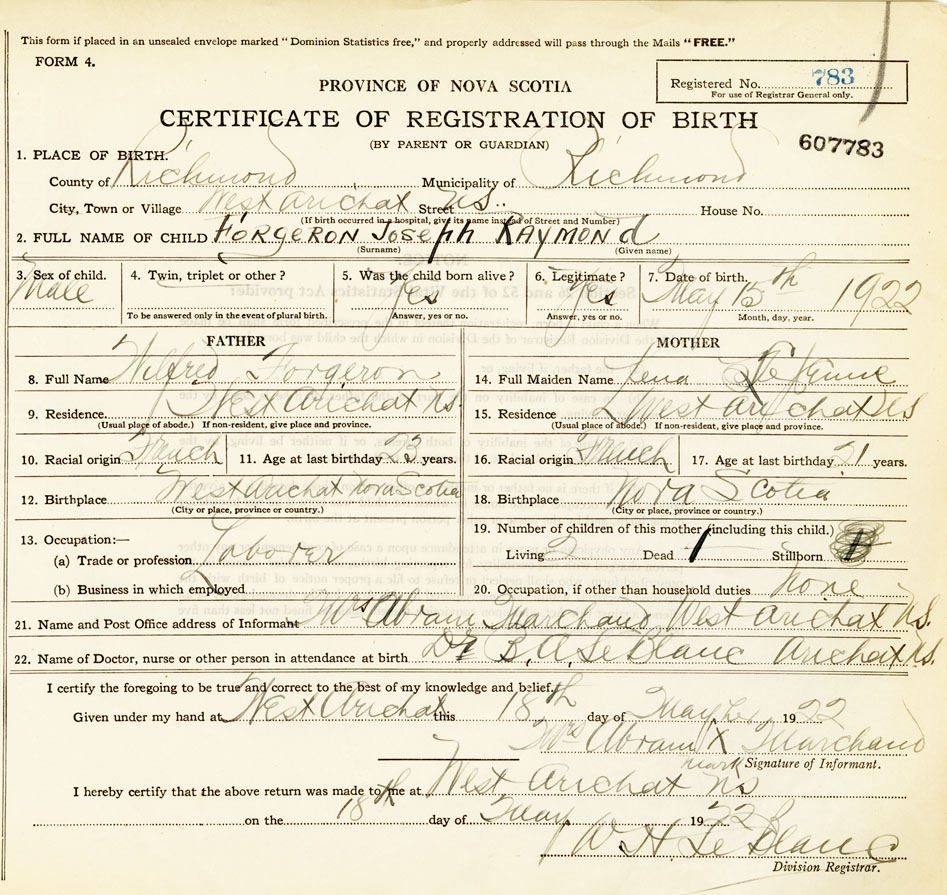 This form if placed in an unsealed envelope marked "Dominion Statistics free," and properly addressed will pass through the Mails "FREE."
FORM 4.
Registered No. 783
For use of Registrar General only.
PROVINCE OF NOVA SCOTIA
CERTIFICATE OF REGISTRATION OF BIRTH
(BY PARENT OR GUARDIAN)
607783
1. PLACE OF BIRTH.
County of Richmond Municipality of Richmond
City, Town or Village West Arichat Street N.S. House No.
(If birth occurred in a hospital, give its name instead of Street and Number)
2. FULL NAME OF CHILD FORGERON JOSEPH RAYMOND
(Surname) (Given name)
3. Sex of child. 4. Twin, triplet or other? 5. Was the child born alive? 6. Legitimate? 7. Date of birth.
Male Yes Yes May 15th 1922
To be answered only in the event of plural birth. Answer, yes or no. Answer, yes or no. Month, day, year.
FATHER MOTHER
8. Full Name Wilfred Forgeron 14. Full Maiden Name Lena
9. Residence West Arichat NS. 15. Residence West Arichat NS
(Usual place of abode.) If non-resident, give place and province. (Usual place of abode.) If non-resident, give place and province.
10. Racial origin French 11. Age at last birthday 23 years. 16. Racial origin French 17. Age at last birthday 21 years.
12. Birthplace West Arichat Nova Scotia 18. Birthplace Nova Scotia
(City or place, province or country.) (City or place, province or country.)
13. Occupation:— 19. Number of children of this mother (including this child.)
(a) Trade or profession Laborer Living 2 Dead 1 Stillborn
(b) Business in which employed 20. Occupation, if other than household duties none
21. Name and Post Office address of Informant Mrs Abram Marchand West Arichat N.S.
22. Name of Doctor, nurse or other person in attendance at birth Dr B. A. Le Blanc Arichat N.S.
I certify the foregoing to be true and correct to the best of my knowledge and belief.
Given under my hand at West Arichat this 18th day of May 1922
Mrs Abram X Marchand
mark Signature of Informant.
I hereby certify that the above return was made to me at West Arichat NS
on the 18th day of May 1922
W H Le Blanc
Division Registrar.